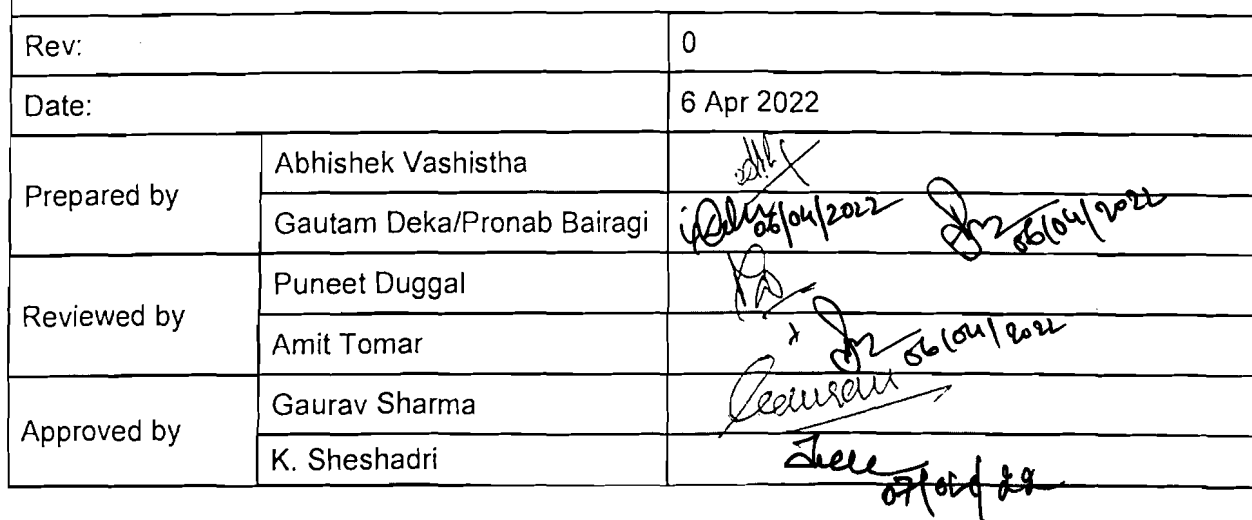 Rev: 0
Date: 6 Apr 2022
Prepared by
Abhishek Vashistha
Gautam Deka/Pronab Bairagi 06/04/2022 06/04/2022
Reviewed by
Puneet Duggal
Amit Tomar 06/04/2022
Approved by
Gaurav Sharma
K. Sheshadri
07/04/22